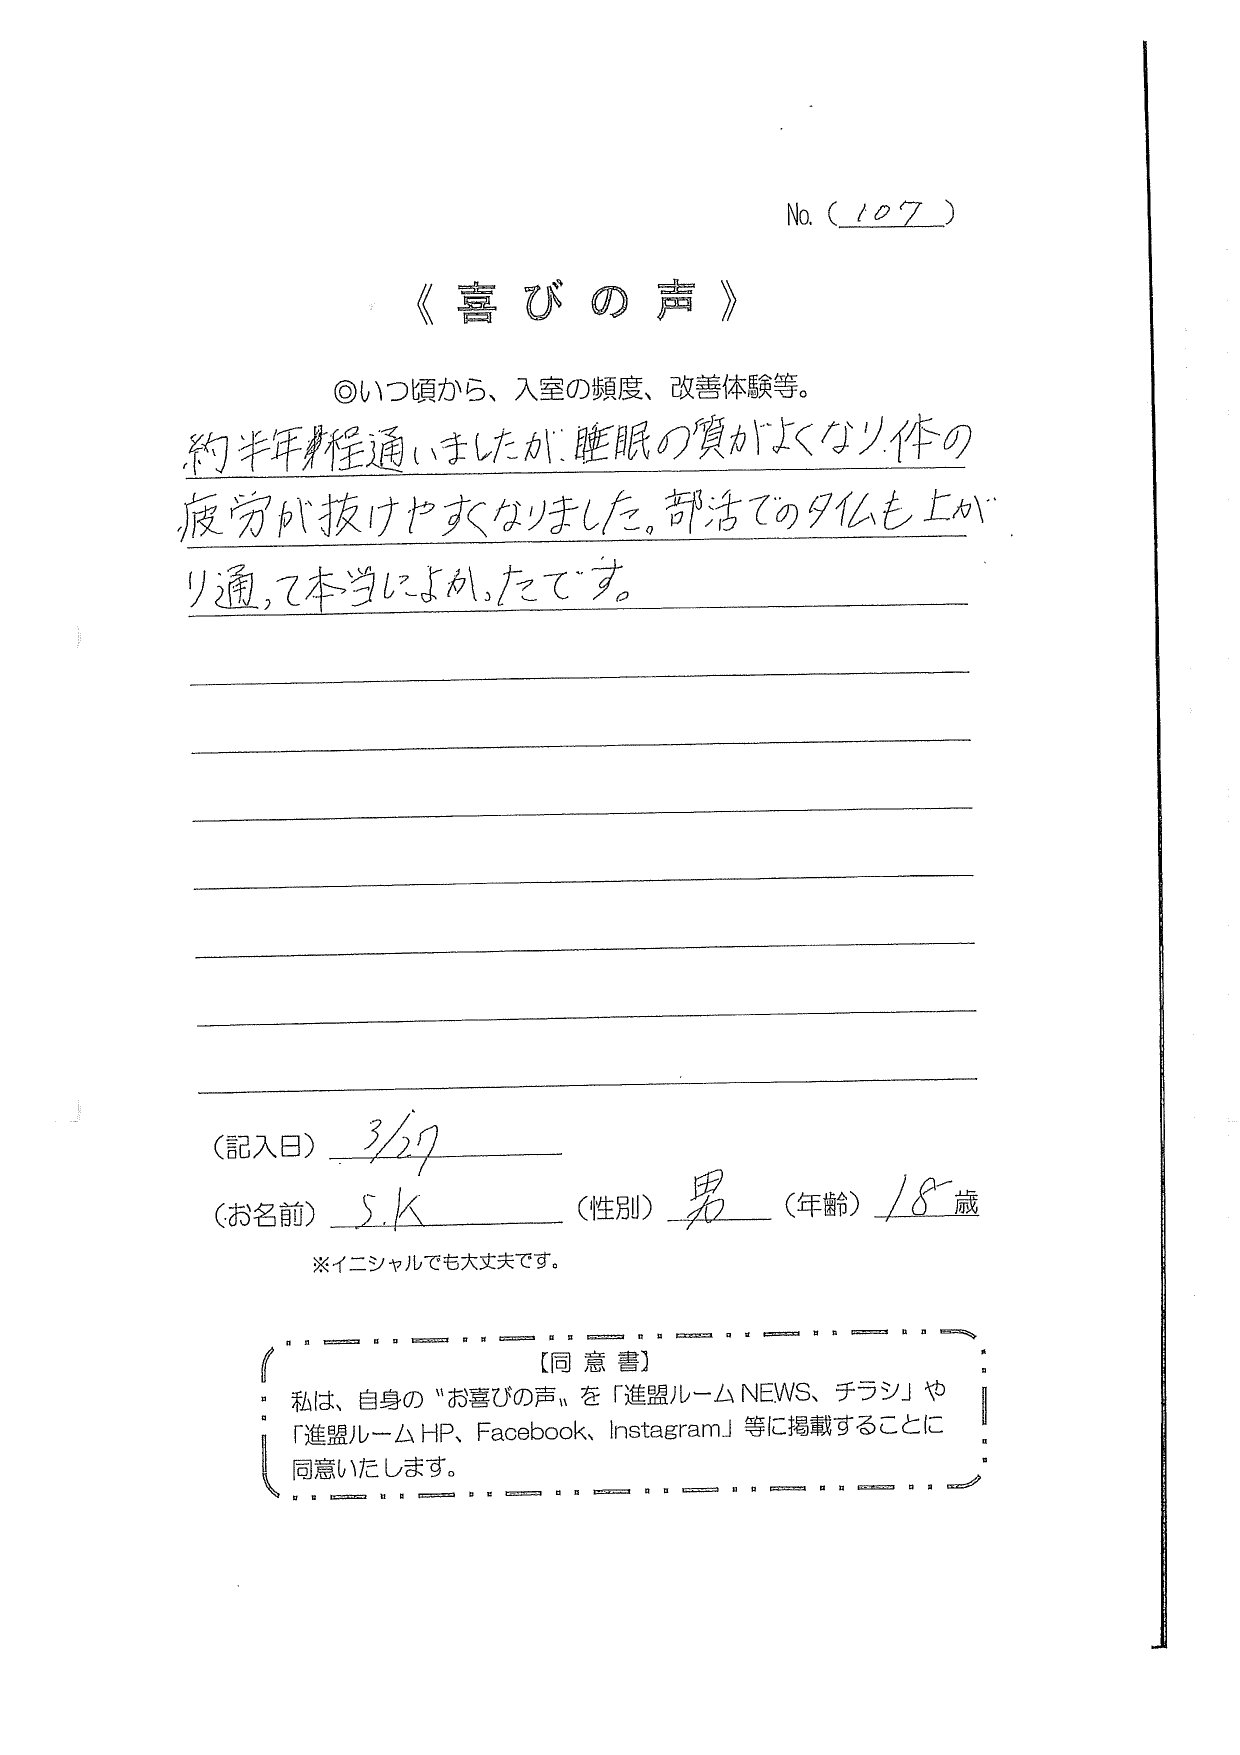 No.(107)
《喜びの声》
◎いつ頃から、入室の頻度、改善体験等。
約半年程通いましたが、睡眠の質がよくなり、体の
疲労が抜けやすくなりました。部活でのタイムも上が
り通って本当によかったです。
(記入日) 3/27
(お名前) S.K (性別) 男 (年齢) 18歳
※イニシャルでも大丈夫です。
【同意書】
私は、自身の〝お喜びの声〟を「進盟ルームNEWS、チラシ」や
「進盟ルームHP、Facebook、Instagram」等に掲載することに
同意いたします。